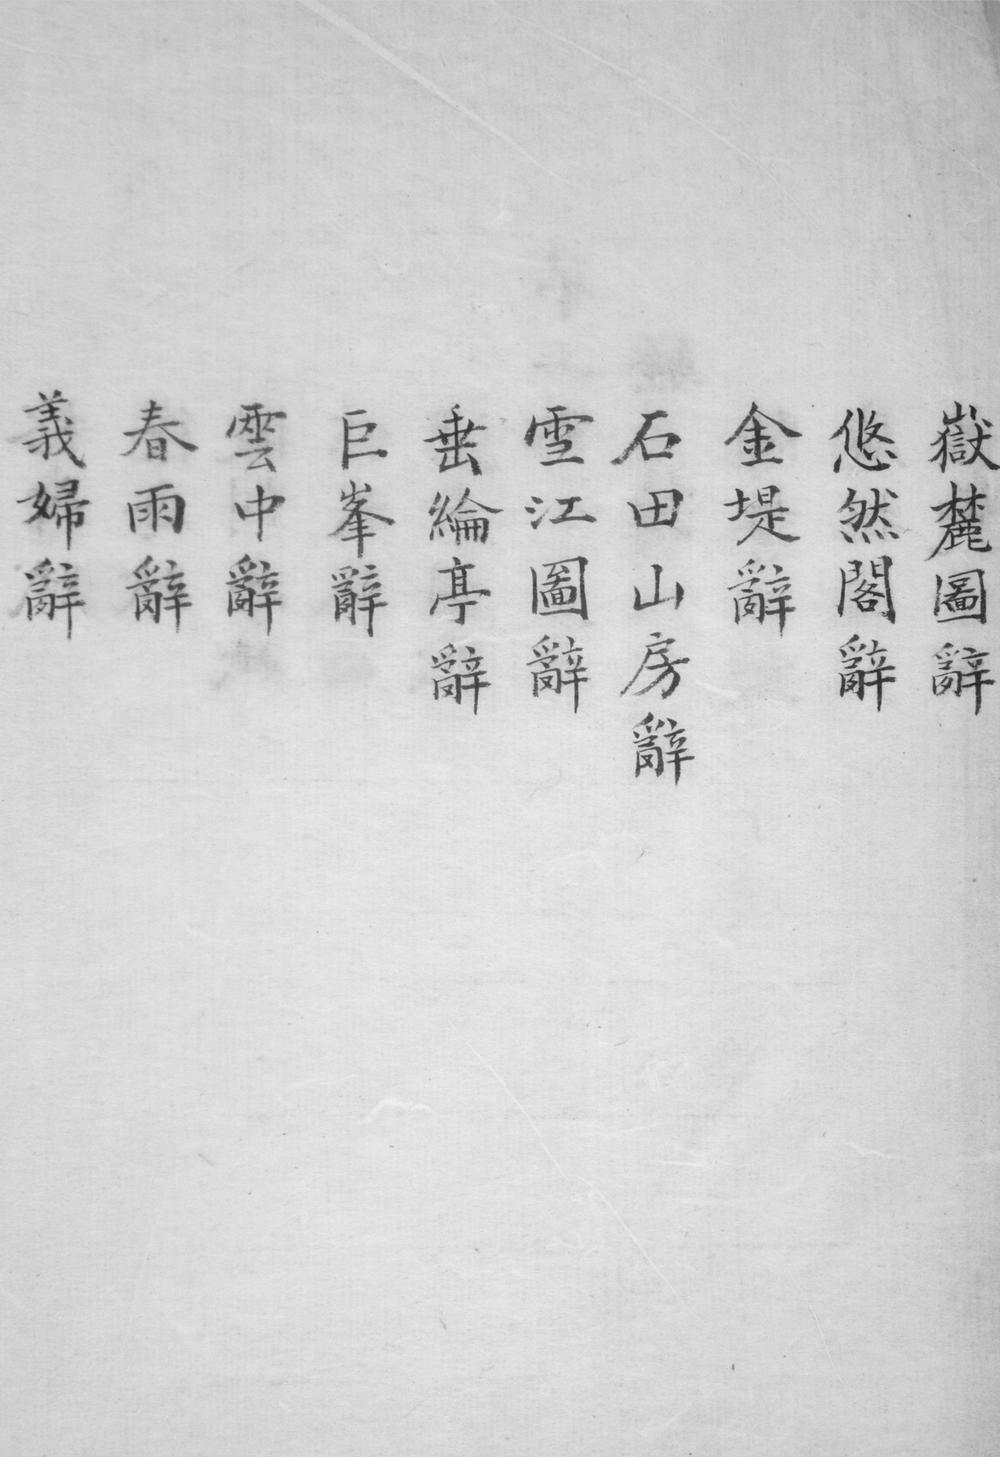 嶽麓圖辭
悠然閣辭
金堤辭
石田山房辭
雪江圖辭
垂綸亭辭
巨峯辭
雲中辭
春雨辭
義婦辭